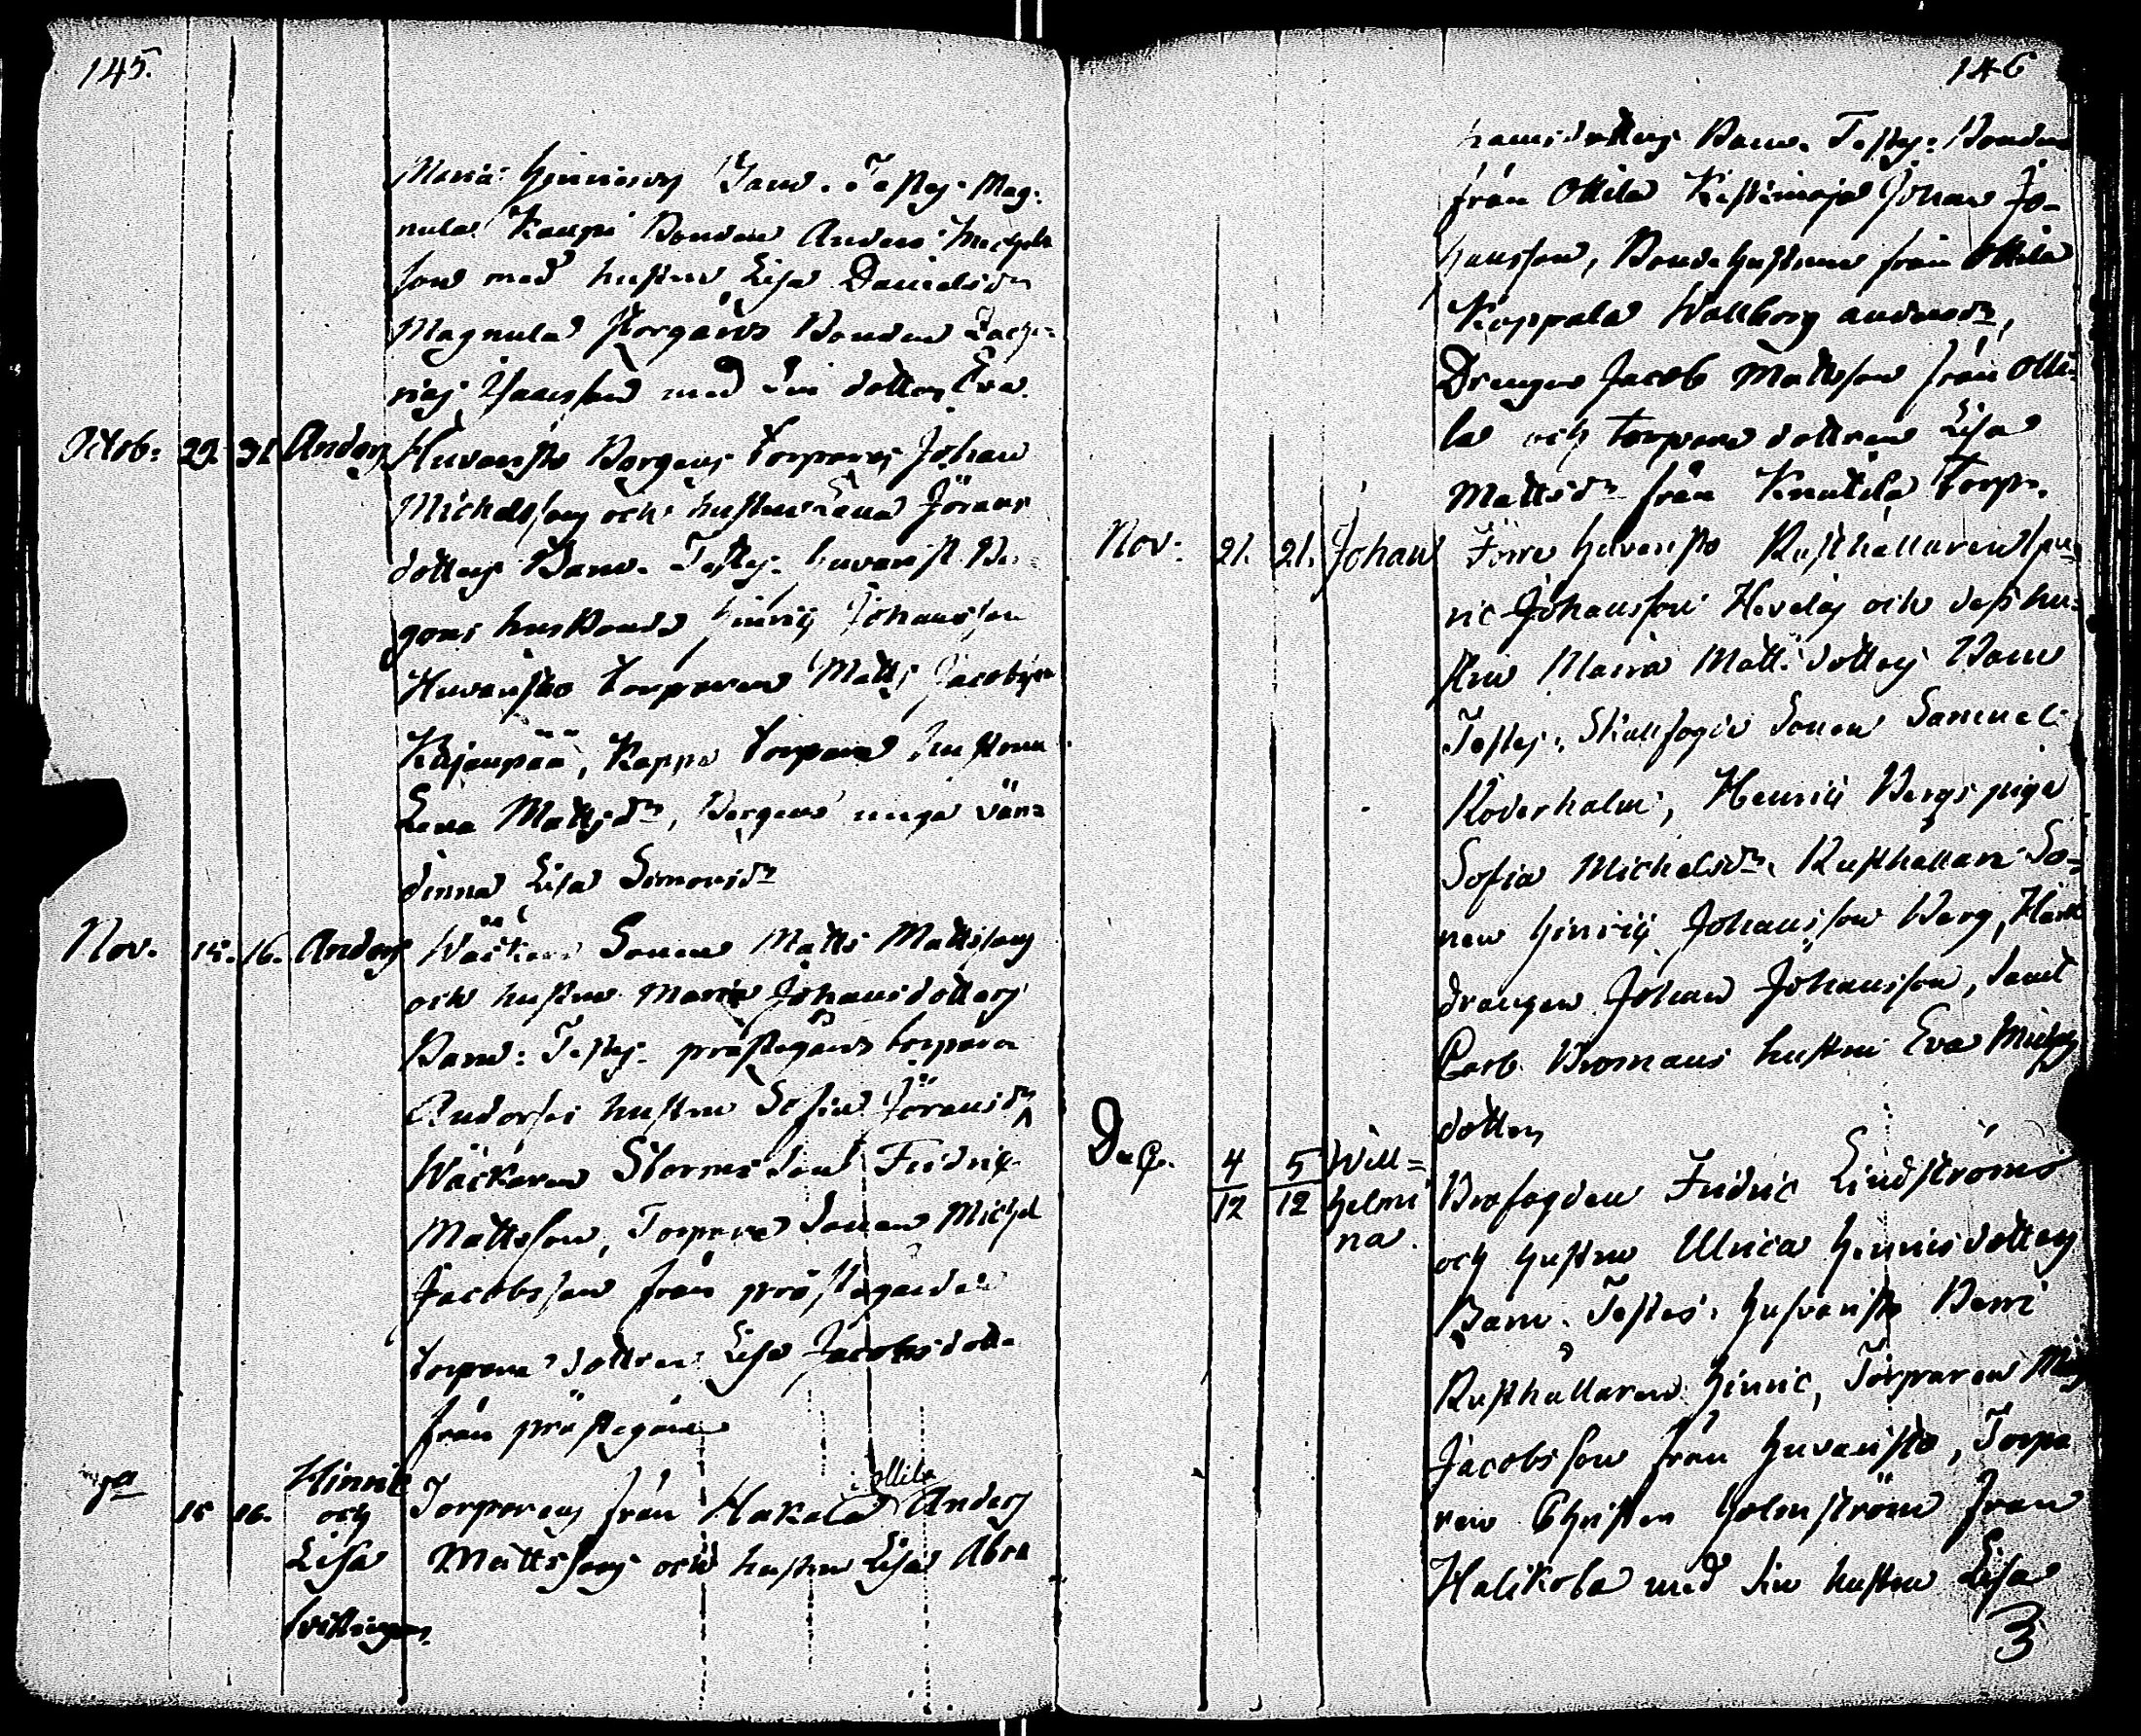 145.
Maria Hinricsdrs Barn. Testes. Mag-
nula Kaupi Bonden Anders Michels
son med hustru Lisa Danielsdr
Magnula Storgårds Bonden Zach-
rias Isacsson med sin dotter Eva.
Octob: 29. 31. Anders Huvansto Borgens Torpares Johan
Michelssons och hustru Lena Jörans
dotters Barn. Testes. Huvanst. Bor-
gens husbonde Hinric Johansson
Huvansto Torparen Matts Jacobsson
Kujanpää, Kappa Torpare hustrun
Lena Mattsdr, Borgens unga vär-
dinna Lisa Simonsdr
Nov. 15. 16. Anders Wäckare Sonen Matts Mattssons
och hustru Maria Johansdotters
Barn: Testes. prästegårds torparen
Anders hustru Sofia Göransdr
Wäckaren Storms son Fredric
Mattsson, Torpare Sonen Michel
Jacobsson från prästegården
torpare dottren Lisa Jacobsdotter
från prästegården
15 16. Hinric
och
Lisa
tvillingar
Torparens från Hakala Ottila Anders
Mattssons och hustru Lisa Abra
146
hamsdotters Barn. Testes: Bonden
från Ottila Kestimaja Johan Jo-
hansson, Bondehustrun från Ottila
Koppala Wallborg Andersdr,
Drengen Jacob Mattsson från Otti-
la och torpare dottren Lisa
Mattsdr från Knutila Torp.
Nov. 21. 21. Johan Förre Huvansto Rusthållaren
ric Johansson Hevelas och dess hu-
stru Maria Matts dotters Barn
Testes. Skallfogde Sonen Samuel
Röderholm, Henric Bergs piga
Sofia Michelsdr. Rusthållare So-
nen Hinric Johansson Berg,
drengen Johan Johansson, samt
Carb. Bromans hustru Eva Michels
dotter
Dec. 4/12 5/12 Will=
helmi
na.
Brofogden Fridric Lindströms
och hustru Ulrica Hinricsdotters
Barn. Testes. Huvansto Berri
Rusthållaren Hinric, Torparen
Jacobsson från Huvansto, Torpa
ren Christer Holmström från
Halikola med sin hustru Lisa
3